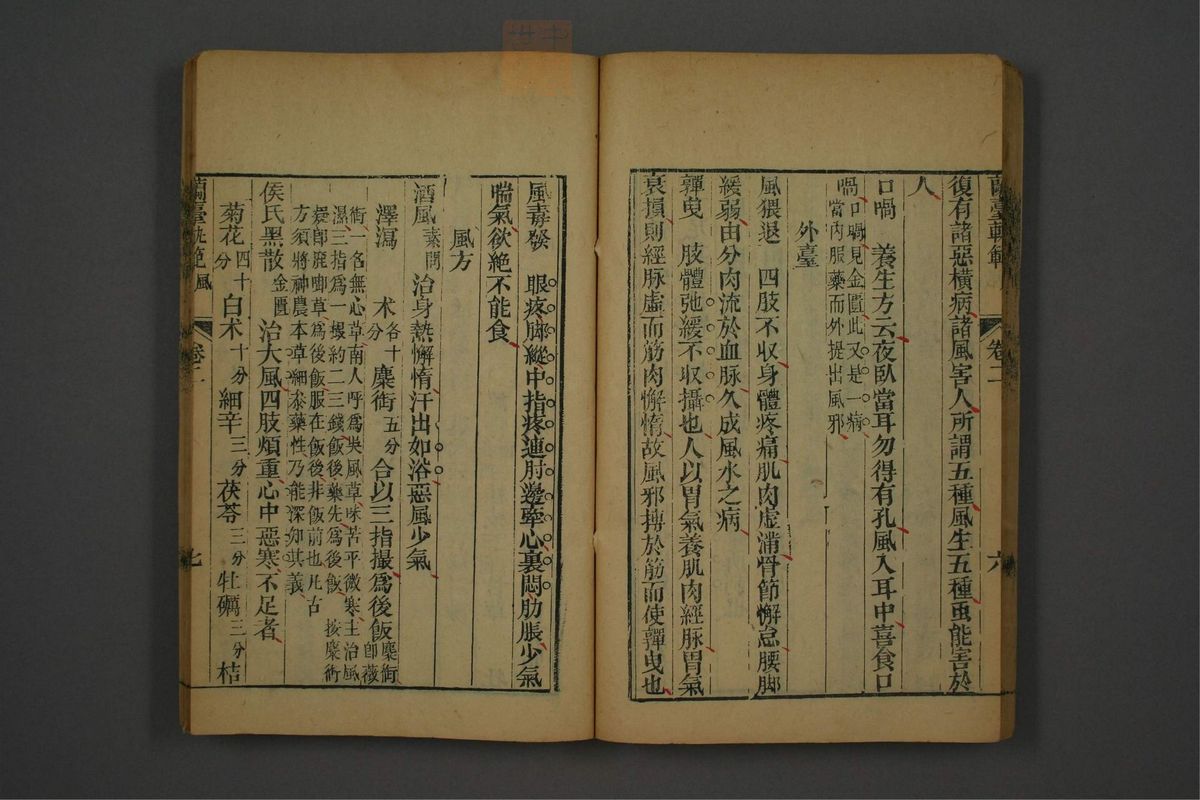 蘭臺軌範
卷二
六
復有諸惡橫病諸風害人所謂五種風生五種虫能害於
人
口喎　養生方云夜臥當耳勿得有孔風入耳中喜食口
喎口喎見金匱此又是一病
當內服藥而外提出風邪
外臺
風猥退　四肢不收身體疼痛肌肉虛滿骨節懈怠腰脚
緩弱由分肉流於血脉久成風水之病
嚲曳　肢體弛緩不收攝也人以胃氣養肌肉經脉胃氣
衰損則經脉虛而筋肉懈惰故風邪搏於筋而使嚲曳也
風毒發　眼疼脚縱中指疼連肘邊牽心裏悶肋脹少氣
喘氣欲絕不能食
風方
酒風素問　治身熱懈惰汗出如浴惡風少氣
澤瀉　朮各十分　麋銜五分　合以三指撮爲後飯麋銜即薇
銜一名無心草南人呼爲吳風草味苦平微寒主治風
濕三指爲一撮約二三錢飯後藥先爲後飯　按麋銜
藥即鹿啣草爲後飯服在飯後非飯前也凡古
方須將神農本草細叅藥性乃能深知其義
侯氏黑散金匱　治大風四肢煩重心中惡寒不足者
菊花四十分　白朮十分　細辛三分　茯苓三分　牡礪三分　桔
蘭臺軌範　風
卷二
七